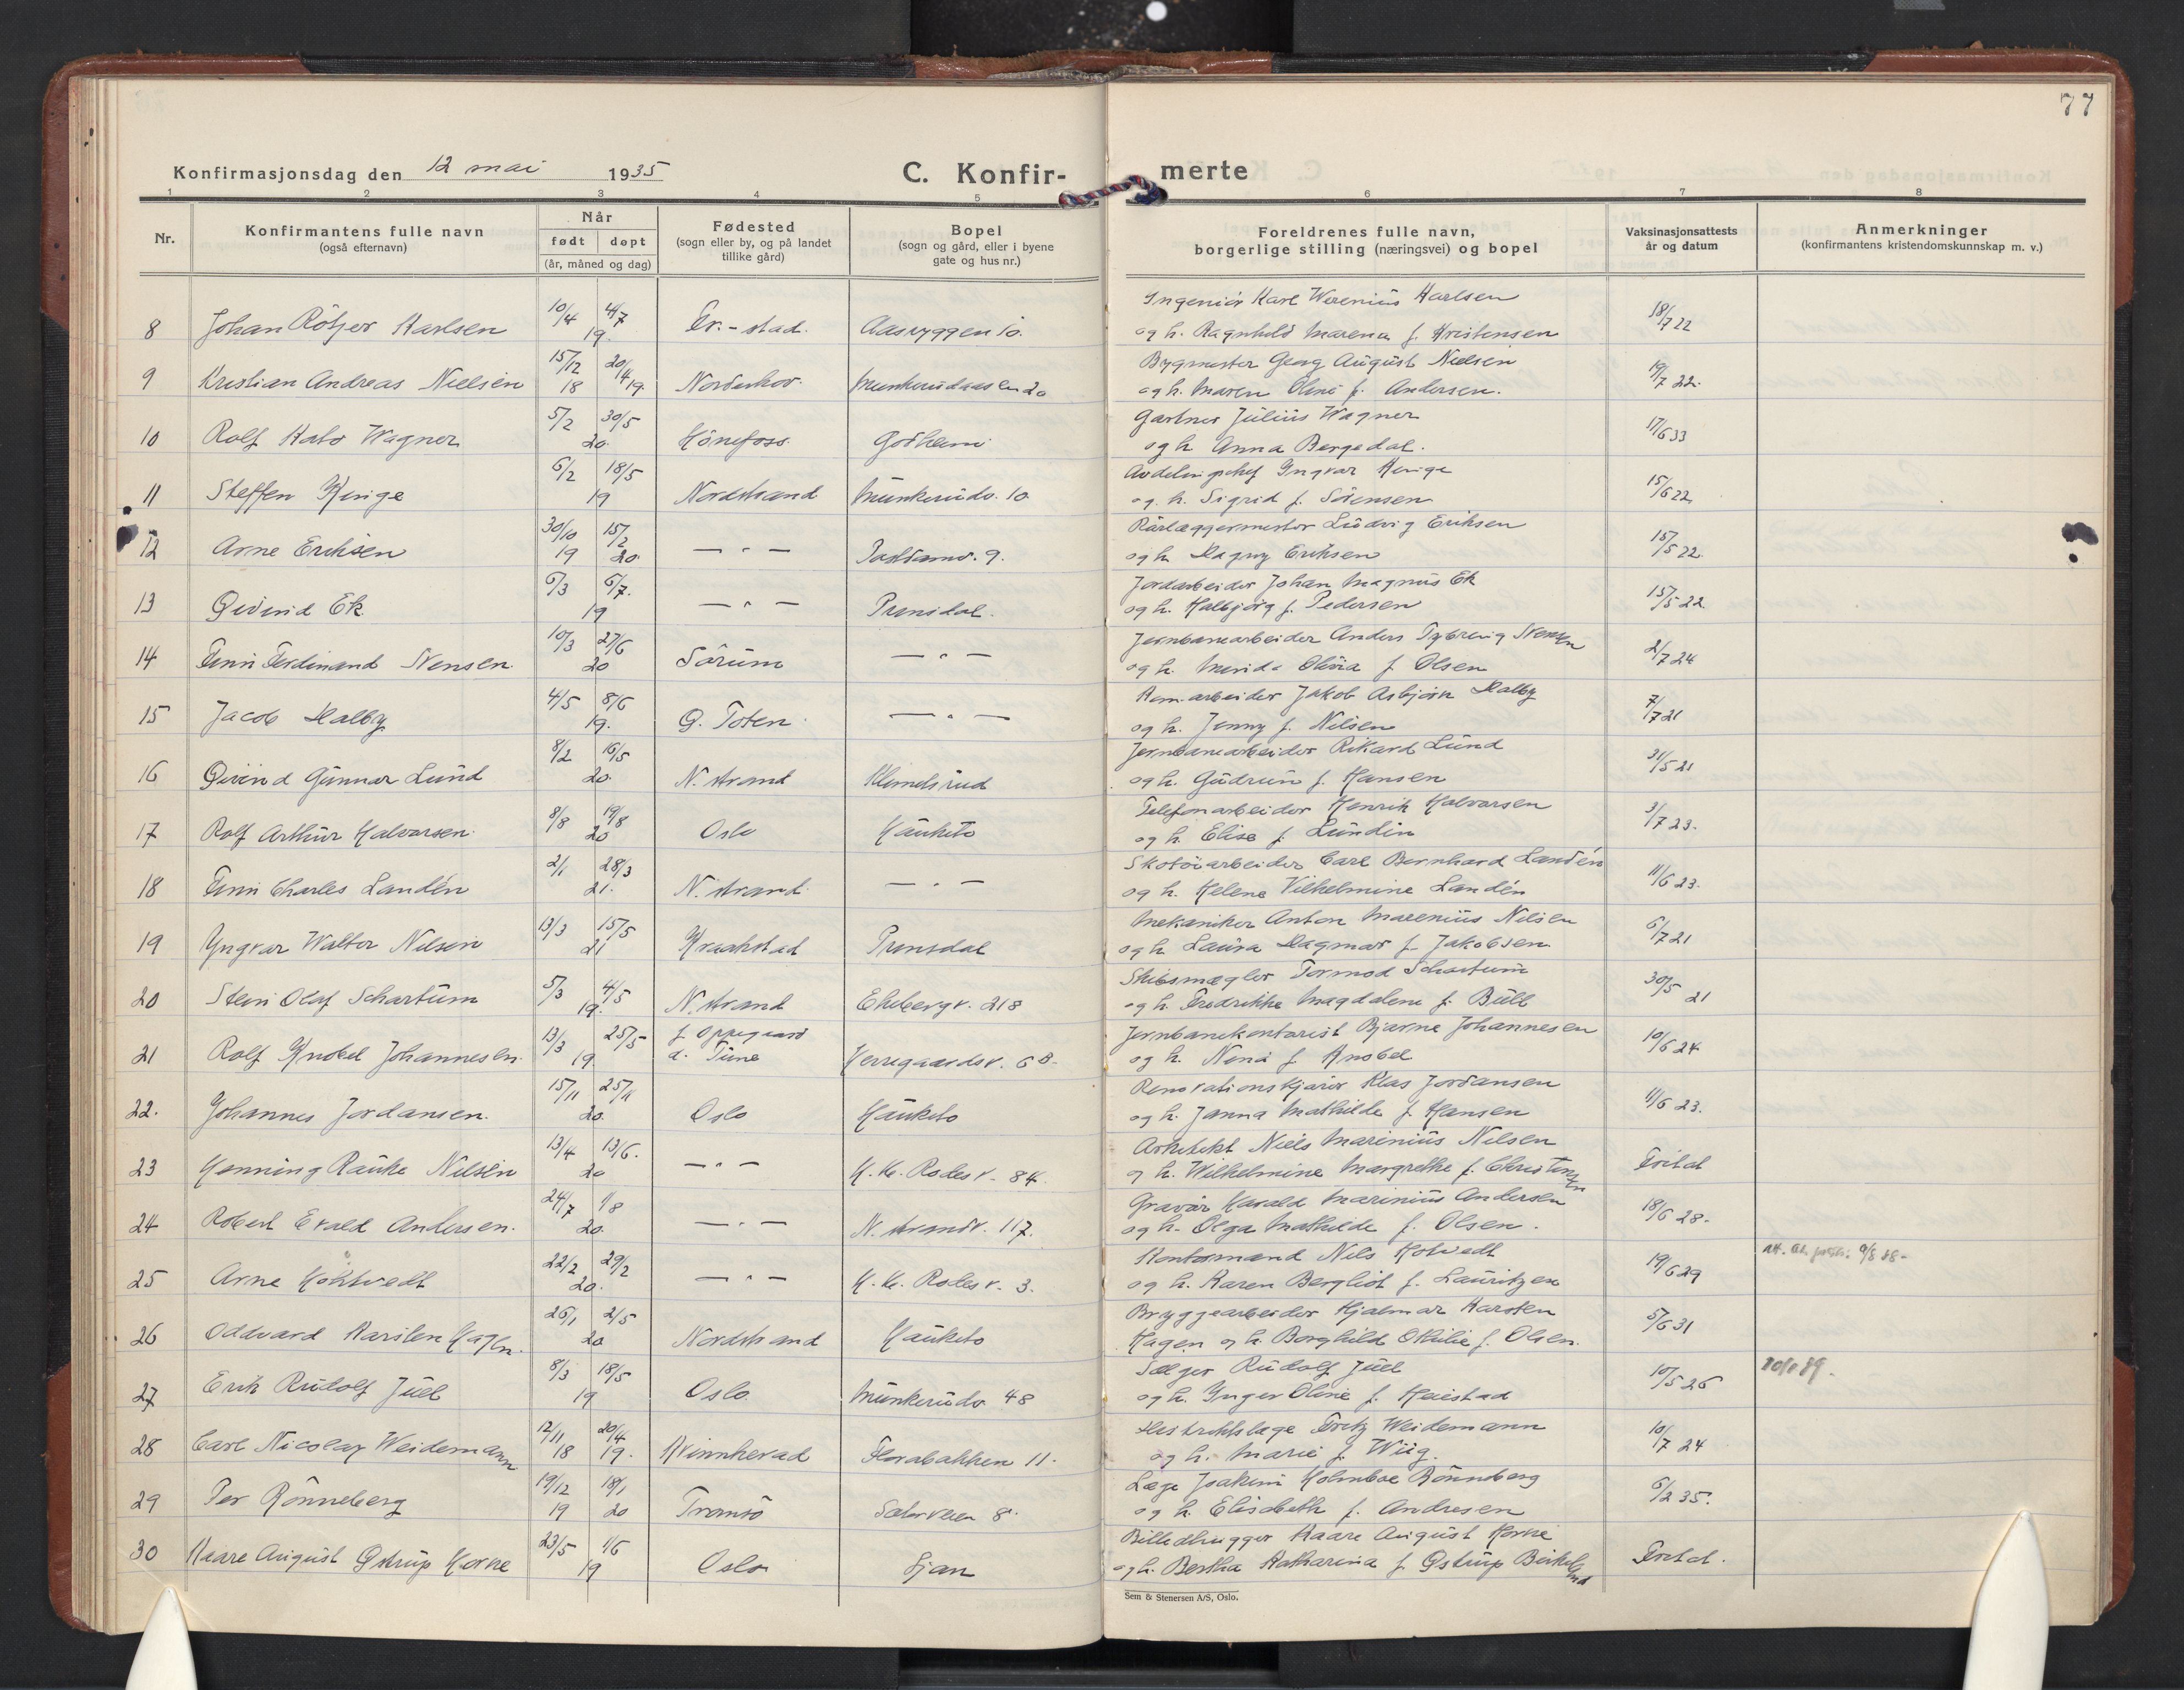 77
Konfirmasjonsdag den 12 mai 1935
C. Konfir-
merte
1 2 3 4 5 6 7 8
Nr.
Konfirmantens fulle navn
(også efternavn)
Når
født døpt
(år, måned og dag)
Fødested
(sogn eller by, og på landet
tillike gård)
Bopel
(sogn og gård, eller i byene
gate og hus nr.)
Foreldrenes fulle navn,
borgerlige stilling (næringsvei) og bopel
Vaksinasjonsattests
år og datum
Anmerkninger
(konfirmantens kristendomskunnskap m. v.)
Ingeniör Karl Werenius Karlsen
8 Johan Rötjer Karlsen 10/4 4/7 19. Fr.-stad. Aasryggen 10.
og h. Ragnhild Marena f. Kristensen 18/7 22
Bygmester Georg August Nielsen
9 Kristian Andreas Nielsen 15/12 18 20/4 19. Norderhov. Munkerudaasen 20
og h. Maren Oline f. Andersen. 19/7 22.
Gartner Julius Wagner
10 Rolf Kato Wagner 5/2 30/5 20. Hönefoss. Godheim
og h. Anna Bergedal. 17/6 33
Avdelingschef Yngvar Henige
11 Steffen Henige 6/2 18/5 19 Nordstrand Munkerudv. 10
og. h. Sigrid f. Sörensen 15/6 22
Rörlæggermester Ludvig Eriksen
12 Arne Eriksen 30/10 19 15/2 20. — " — 9.
og h. Dagny Eriksen 15/5 22.
Jordarbeider Johan Magnus Ek
13 Öivind Ek 6/3 6/7. 19 — " — Prinsdal.
og h. Halbjörg f. Pedersen 15/5 22.
Jernbanearbeider Anders Nensen
14 Finn Ferdinand Nensen. 10/3 27/6 20 Sörum — " —
og h. Olivia f. Olsen 2/7 24
Kom.arbeider Jakob Asbjörn Dalby
15 Jacob Dalby 4/5 8/6 19. Ö. Toten. — " —
og h. Jenny f. Nilsen 7/7 21
Jernbanearbeider Rikard Lund
16 Öivind Gunnar Lund 8/2 16/5 20. N. strand Klemetsrud
og h. Gudrun f. Hansen 31/5 21
Telefonarbeider Henrik Halvorsen
17 Rolf Arthur Halvorsen. 8/8 19/8 20 Oslo Hauketo
og h. Elise f. Lundin 3/7 23.
Skotöiarbeider Carl Bernhard Landén
18 Finn Charles Landén 2/1 28/3 21. N. strand. — " —
og h. Helene Vilhelmine Landén 11/6 23.
Mekaniker Anton Marenius Nilsen
19 Yngvar Walter Nilsen 13/3 15/5 21 Kraakstad Prinsdal
og h. Laura Dagmar f. Jakobsen. 6/7 21
Skibsmægler Tormod Schartum
20 Stein Olaf Schartum 5/3 4/5 19. N. strand Ekebergv. 218
og h. Fredrikke Magdalene f. Bull 30/5 21
Jernbanekontorist Bjarne Johannesen
21 Rolf Knobel Johannesen. 13/3 25/5 19. f. Oppegaard d. Tune Herregaardsv. 6 B.
og h. Nena f. Knobel 10/6 24
Renovationskjörer Klas Jordansen
22. Johannes Jordansen. 15/11 25/11 20. Oslo Hauketo
og h. Janna Mathilde f. Hansen 11/6 23.
Arkitekt Niels Marinius Nilsen
23 Henning Rauke Nilsen 13/4 13/6. 20 — " — H. H. Rodesv. 84.
og h. Wilhelmine Margrethe f. Christensen Fritat
Gravör Harald Marinius Andersen
24 Robert Evald Andersen. 24/7 1/8 20. — " — N. strandv. 117.
og h. Olga Mathilde f. Olsen. 18/6 28.
Kontormand Nils Kotvedt
25 Arne Kohtvedt 22/2 29/2 20. — " — H. H. Rodesv. 3.
og h. Karen Bergliot f. Lauritzen 19/6 29 9/5 38.
Bryggearbeider Hjalmar Karsten
26 Oddvard Karsten Hagen. 26/1 2/5 20 Nordstrand Hauketo
Hagen og h. Borghild Othilie f. Olsen. 5/6 31
Sælger Rudolf Juel
27 Erik Rudolf Juel 8/3 18/5 19 Oslo Munkerudv. 48
og h. Inger Oline f. Heiestad 10/5 26
Distriktslæge Fritz Weidemann
28 Carl Nicolay Weidemann 12/11 18 20/4 19. Kvinnherad Florabakken 11.
og h. Marie f. Wiig. 10/7 24
Læge Joakim Holmboe Rönneberg
29 Per Rönneberg 19/12 19 18/1 20 Tromsö Sæterveien 8.
og h. Elisabeth f. Andresen 6/2 35.
Billedhugger Kaare August Horne
30 Kaare August Östrup Horne 23/5 1/6 19 Oslo Ljan
og h. Bertha Katharina f. Östrup Birkeland Fritat.
Sem & Stenersen A/S, Oslo.